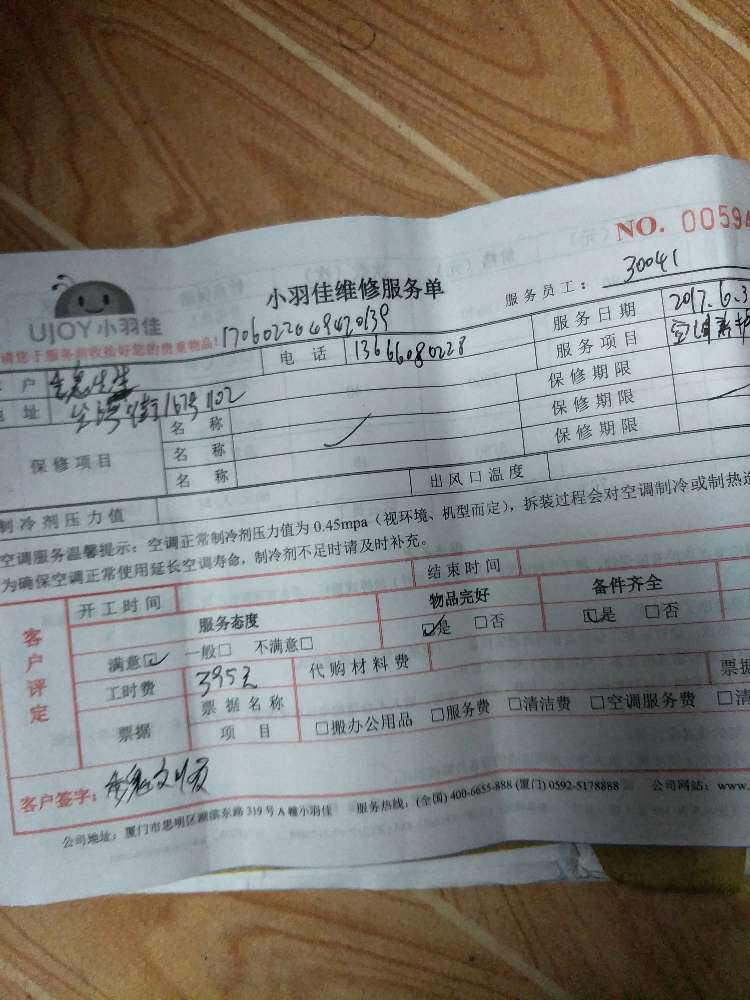 NO. 00594
小羽佳维修服务单
服务员工：30041
UJOY 小羽佳
请您于服务前收拾好您的贵重物品！
17060220494920139
户 先生 电话 13666080228 服务日期 2017.6.3
址 167号102 服务项目 空调
保修项目 名称 保修期限
名称 保修期限
名称 保修期限
制冷剂压力值 出风口温度
空调服务温馨提示：空调正常制冷剂压力值为 0.45mpa（视环境、机型而定），拆装过程会对空调制冷或制热造
为确保空调正常使用延长空调寿命，制冷剂不足时请及时补充。
客户评定 开工时间 结束时间
服务态度 物品完好 备件齐全
满意☑ 一般□ 不满意□ ☑是 □否 ☑是 □否
工时费 395元 代购材料费
票据 票据名称 票据
项目 □搬办公用品 □服务费 □清洁费 □空调服务费 □清
客户签字：
公司地址：厦门市思明区湖滨东路 319 号 A 幢小羽佳 服务热线：(全国) 400-6655-888 (厦门) 0592-5178888 公司网站：www.